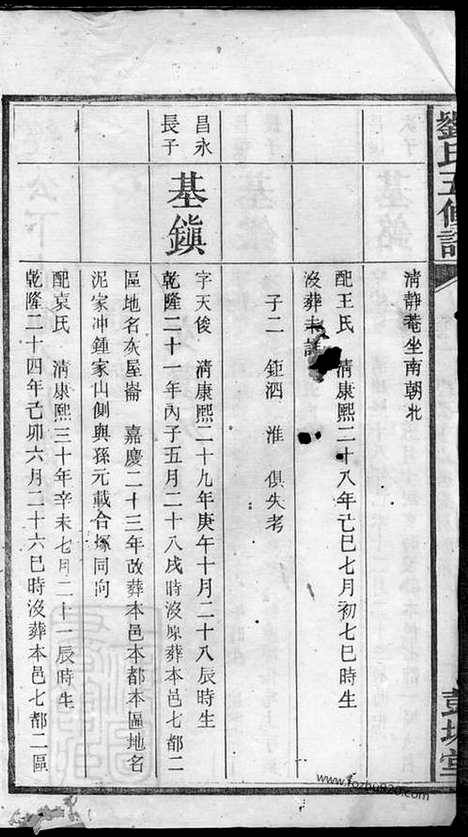 劉氏五修譜
清靜菴坐南朝北
配王氏 清康熙二十八年己巳七月初七巳時生
沒葬未詳
子二 鉅泗 淮 俱失考
昌永
長子
基鎮
字天俊 清康熙二十九年庚午十月二十八辰時生
乾隆二十一年丙子五月二十八戌時沒原葬本邑七都二
區地名灰屋崙 嘉慶二十三年改葬本邑本都本區地名
泥家冲鍾家山側與孫元載合塚同向
配袁氏 清康熙三十年辛未七月二十一辰時生
乾隆二十四年己卯六月二十六巳時沒葬本邑七都二區